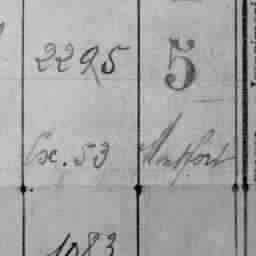 2295 5
Cx. 53 Montfort
1083